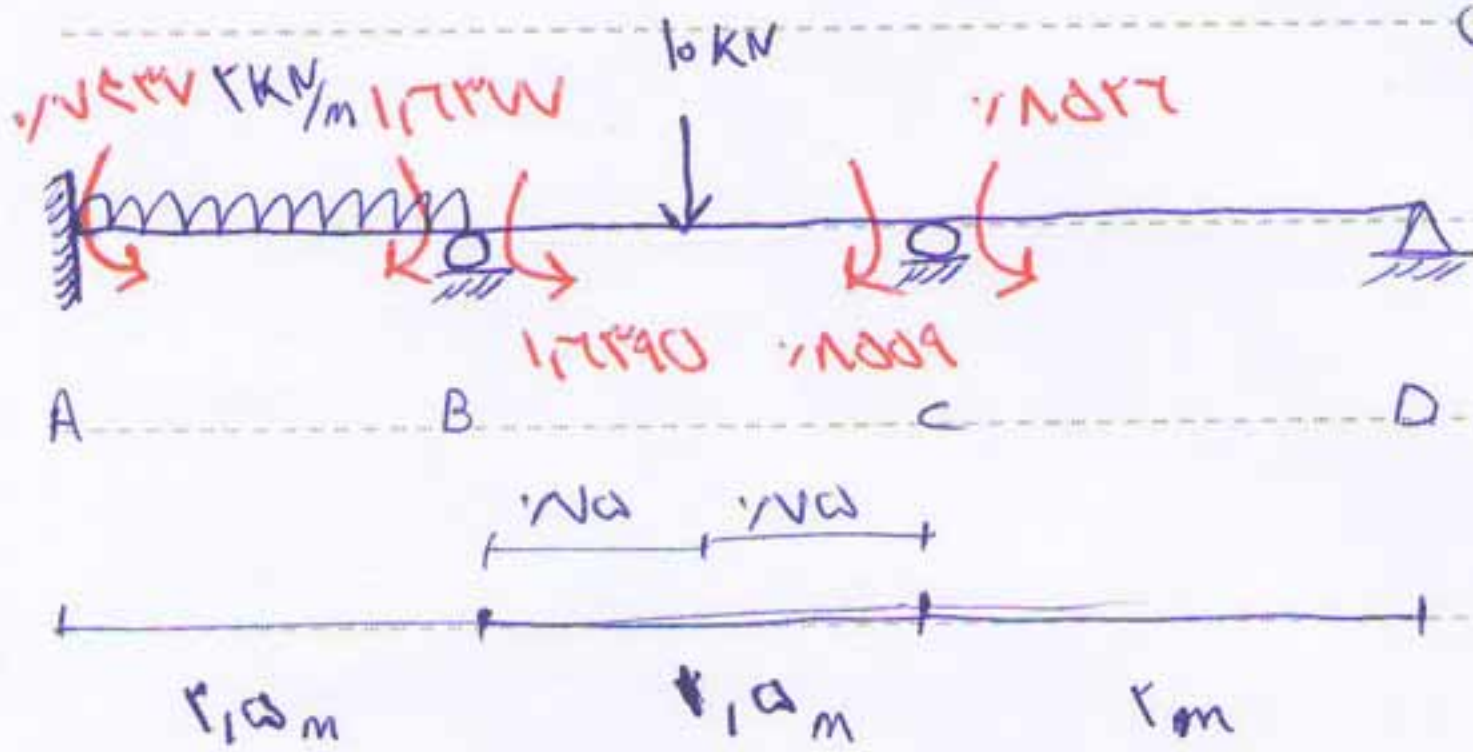 ۱۰ KN
۰٫۷۴۳۷ ۲KN/m ۱٫۶۳۷۷ ۰٫۸۵۲۶
۱٫۶۳۹۵ ۰٫۸۵۵۹
A B C D
۰٫۷۵ ۰٫۷۵
۱٫۵ m ۲m